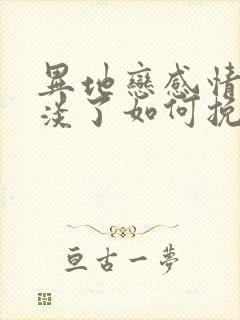 異地戀感情
淡了如何挽
亘古一夢